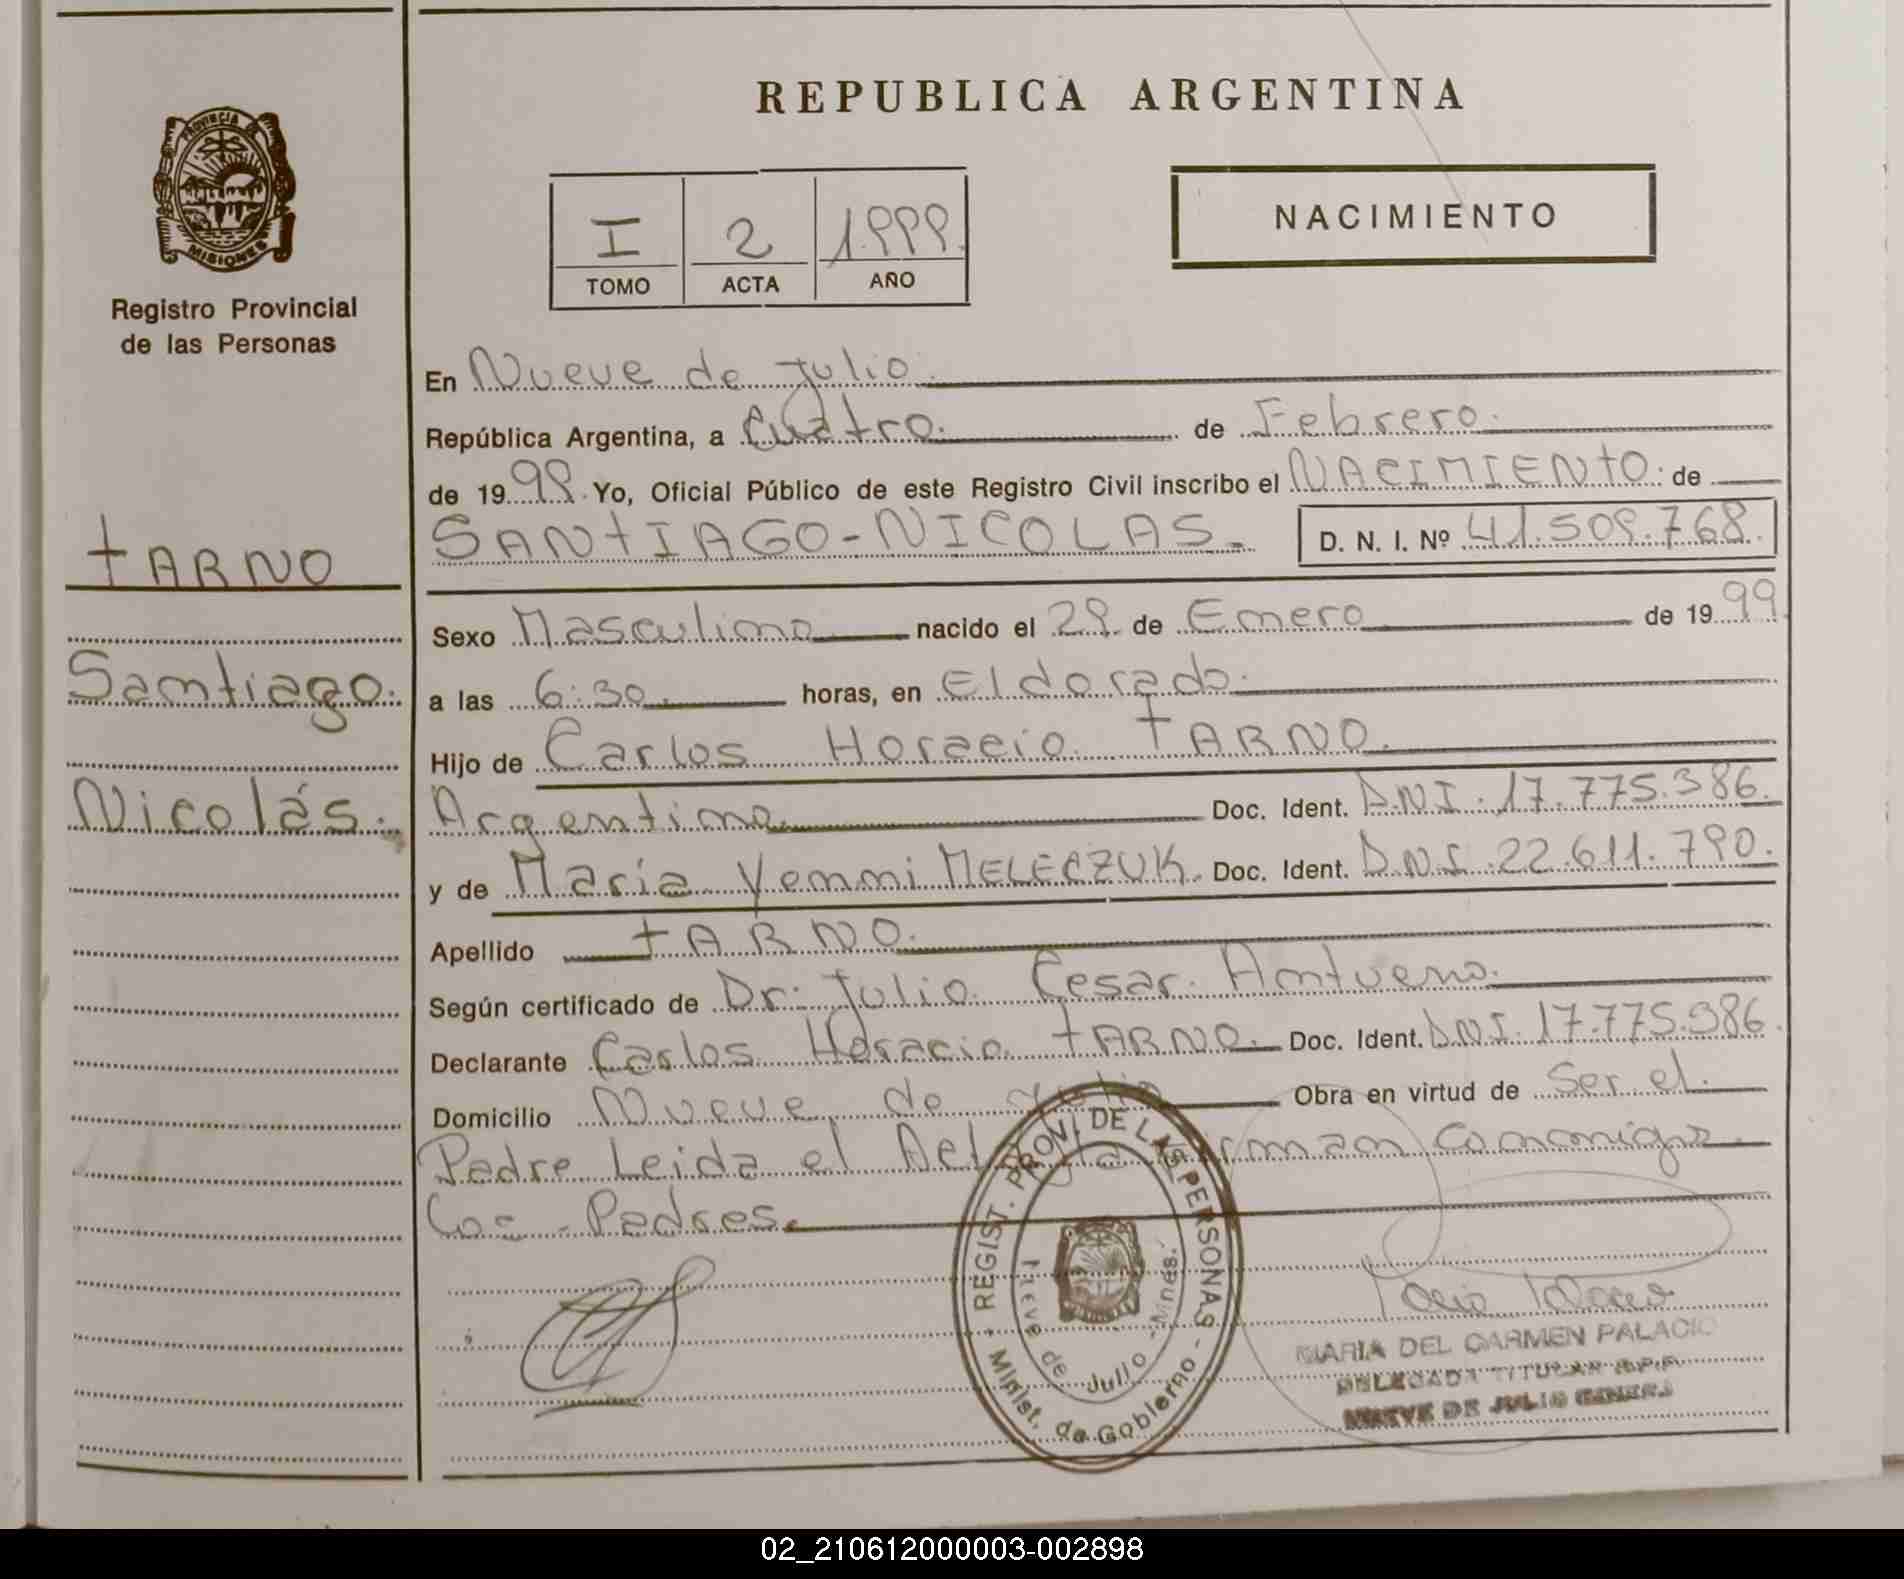 REPUBLICA ARGENTINA
PROVINCIA DE
MISIONES
Registro Provincial
de las Personas
I 2 1.999.
TOMO ACTA AÑO
NACIMIENTO
En Nueve de Julio.
República Argentina, a Cuatro. de Febrero.
de 1999. Yo, Oficial Público de este Registro Civil inscribo el NACIMIENTO. de
SANTIAGO-NICOLAS. D. N. I. Nº 41.509.768.
TARNO
Santiago.
Nicolás.
Sexo Masculino nacido el 29. de Enero de 1999.
a las 6:30. horas, en Eldorado.
Hijo de Carlos Horacio TARNO.
Argentino Doc. Ident. D.N.I. 17.775.386.
y de María Yemmi MELECZUK. Doc. Ident. D.N.I. 22.611.790.
Apellido TARNO.
Según certificado de Dr. Julio Cesar.
Declarante Carlos Horacio TARNO. Doc. Ident. D.N.I. 17.775.386.
Domicilio Nueve de Julio Obra en virtud de Ser el.
Padre Leida el firman conmigo.
Los - Padres.
REGIST. PROV. DE LAS PERSONAS
Minist. de Gobierno
Nueve de Julio - Mnes.
MARIA DEL CARMEN PALACIO
DELEGADA TITULAR R.P.P.
NUEVE DE JULIO
02_210612000003-002898